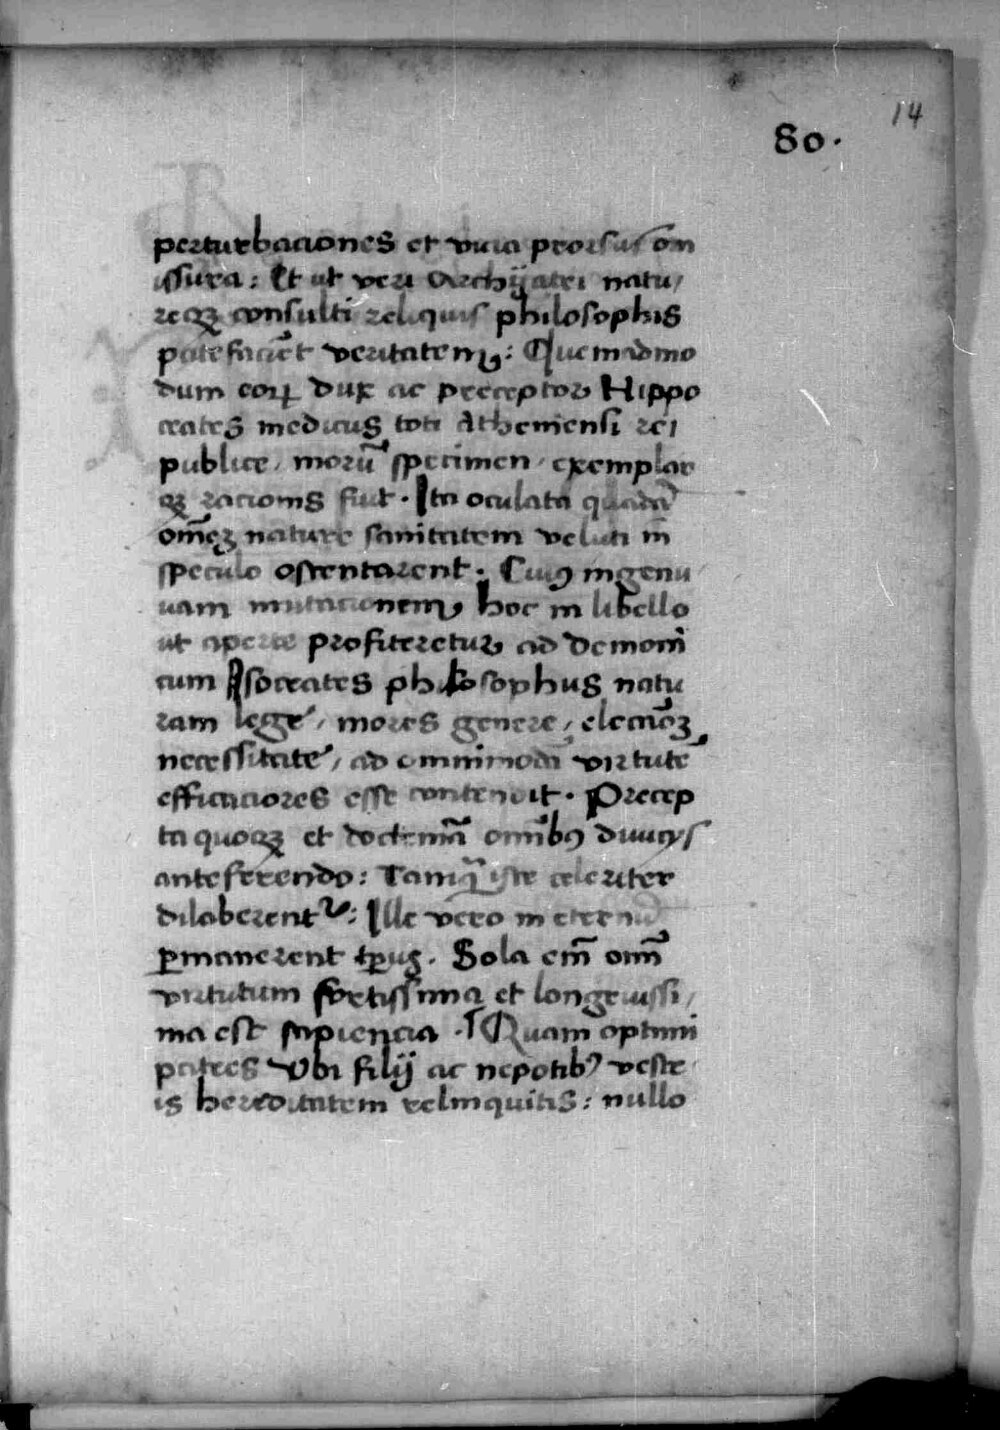 14
80.
perturbaciones et vicia prorsus om
issura: Et ut veri Archyatri natu/
reqꝫ consulti reliquis philosophis
patefaciēt veritatem: Quemadmo
dum eoꝝ dux ac preceptor Hippo
crates medicus toti Atheniensi rei
publice, morū specimen, exemplar
qꝫ racionis fuit. Ita oculata quadā
om̄eꝫ nature sanitatem veluti in
speculo ostentarent. Cuiꝰ ingenu
uam mutacionem hoc in libello
ut aperte profiteretur ad demoni
cum Isocrates philosophus natu
ram lege, mores genere, elecciōeꝫ
necessitate, ad omnimodā virtutē
efficaciores esse contendit. Precep
ta quoqꝫ et doctrinā om̄ibꝰ diuicijs
anteferendo: Tamqͣ iste celeriter
dilaberent᷑: Ille vero in eternū
ꝑmanerent tp̄us. Sola em̄ om̄
virtutum fortissima et longeuissi/
ma est sapiencia. Quam optimi
patres Vbi filij ac nepotibꝰ vestr
is hereditatem relinquitis: nullo